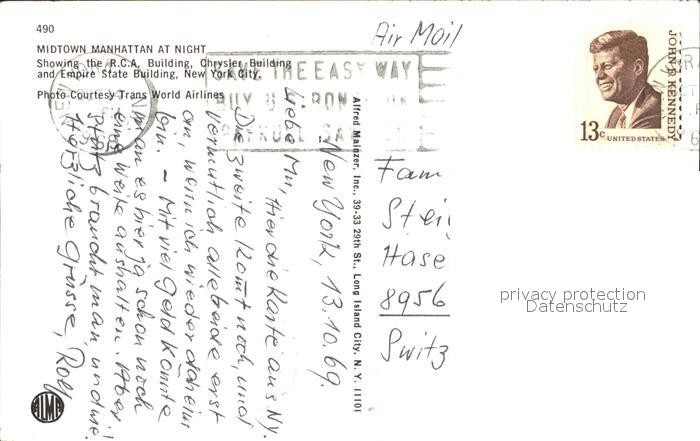 490
MIDTOWN MANHATTAN AT NIGHT
Showing the R.C.A. Building, Chrysler Building
and Empire State Building, New York City.
Photo Courtesy Trans World Airlines
Air Mail
THE EASY WAY
BUY U.S. BON
PAYROLL SA
JOHN F. KENNEDY
13c UNITED STATES
Alfred Mainzer, Inc., 39-33 29th St., Long Island City, N. Y. 11101
New York, 13.10.69.
Liebe Mu, Hier die Karte aus Ny.
Die zweite kommt noch, und
vermutlich alle beide erst
an, wenn ich wieder daheim
bin. - Mit viel Geld könnte
man es hier ja schon noch
eine Weile aushalten. Aber
braucht man
Herzliche Grüsse, Roy
Fam
Stei
Hase
8956
Switz
privacy protection
Datenschutz
ALMA